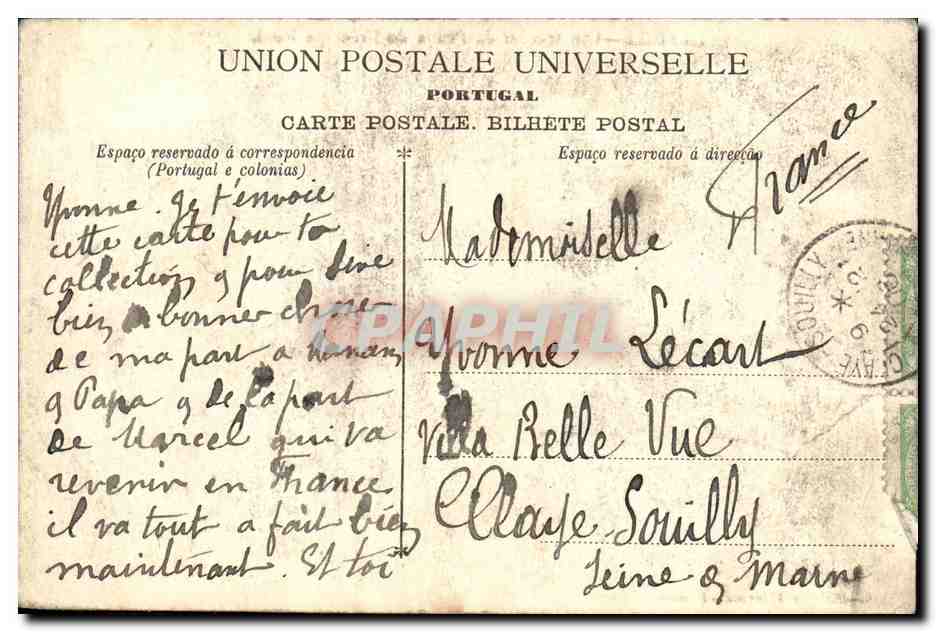 UNION POSTALE UNIVERSELLE
PORTUGAL
CARTE POSTALE. BILHETE POSTAL
Espaço reservado á correspondencia
(Portugal e colonias)
Espaço reservado á direcção
France
Yvonne. Je t'envoie
cette carte pour ta
collection & pour dire
bien bonner choses
de ma part a maman
& Papa & de la part
de Marcel qui va
revenir en France
il va tout a fait bien
maintenant. Et toi
Mademoiselle
Yvonne Lécart
Villa Belle Vue
Claye-Souilly
Seine & Marne
CLAYE SOUILLY
CPAPHIL